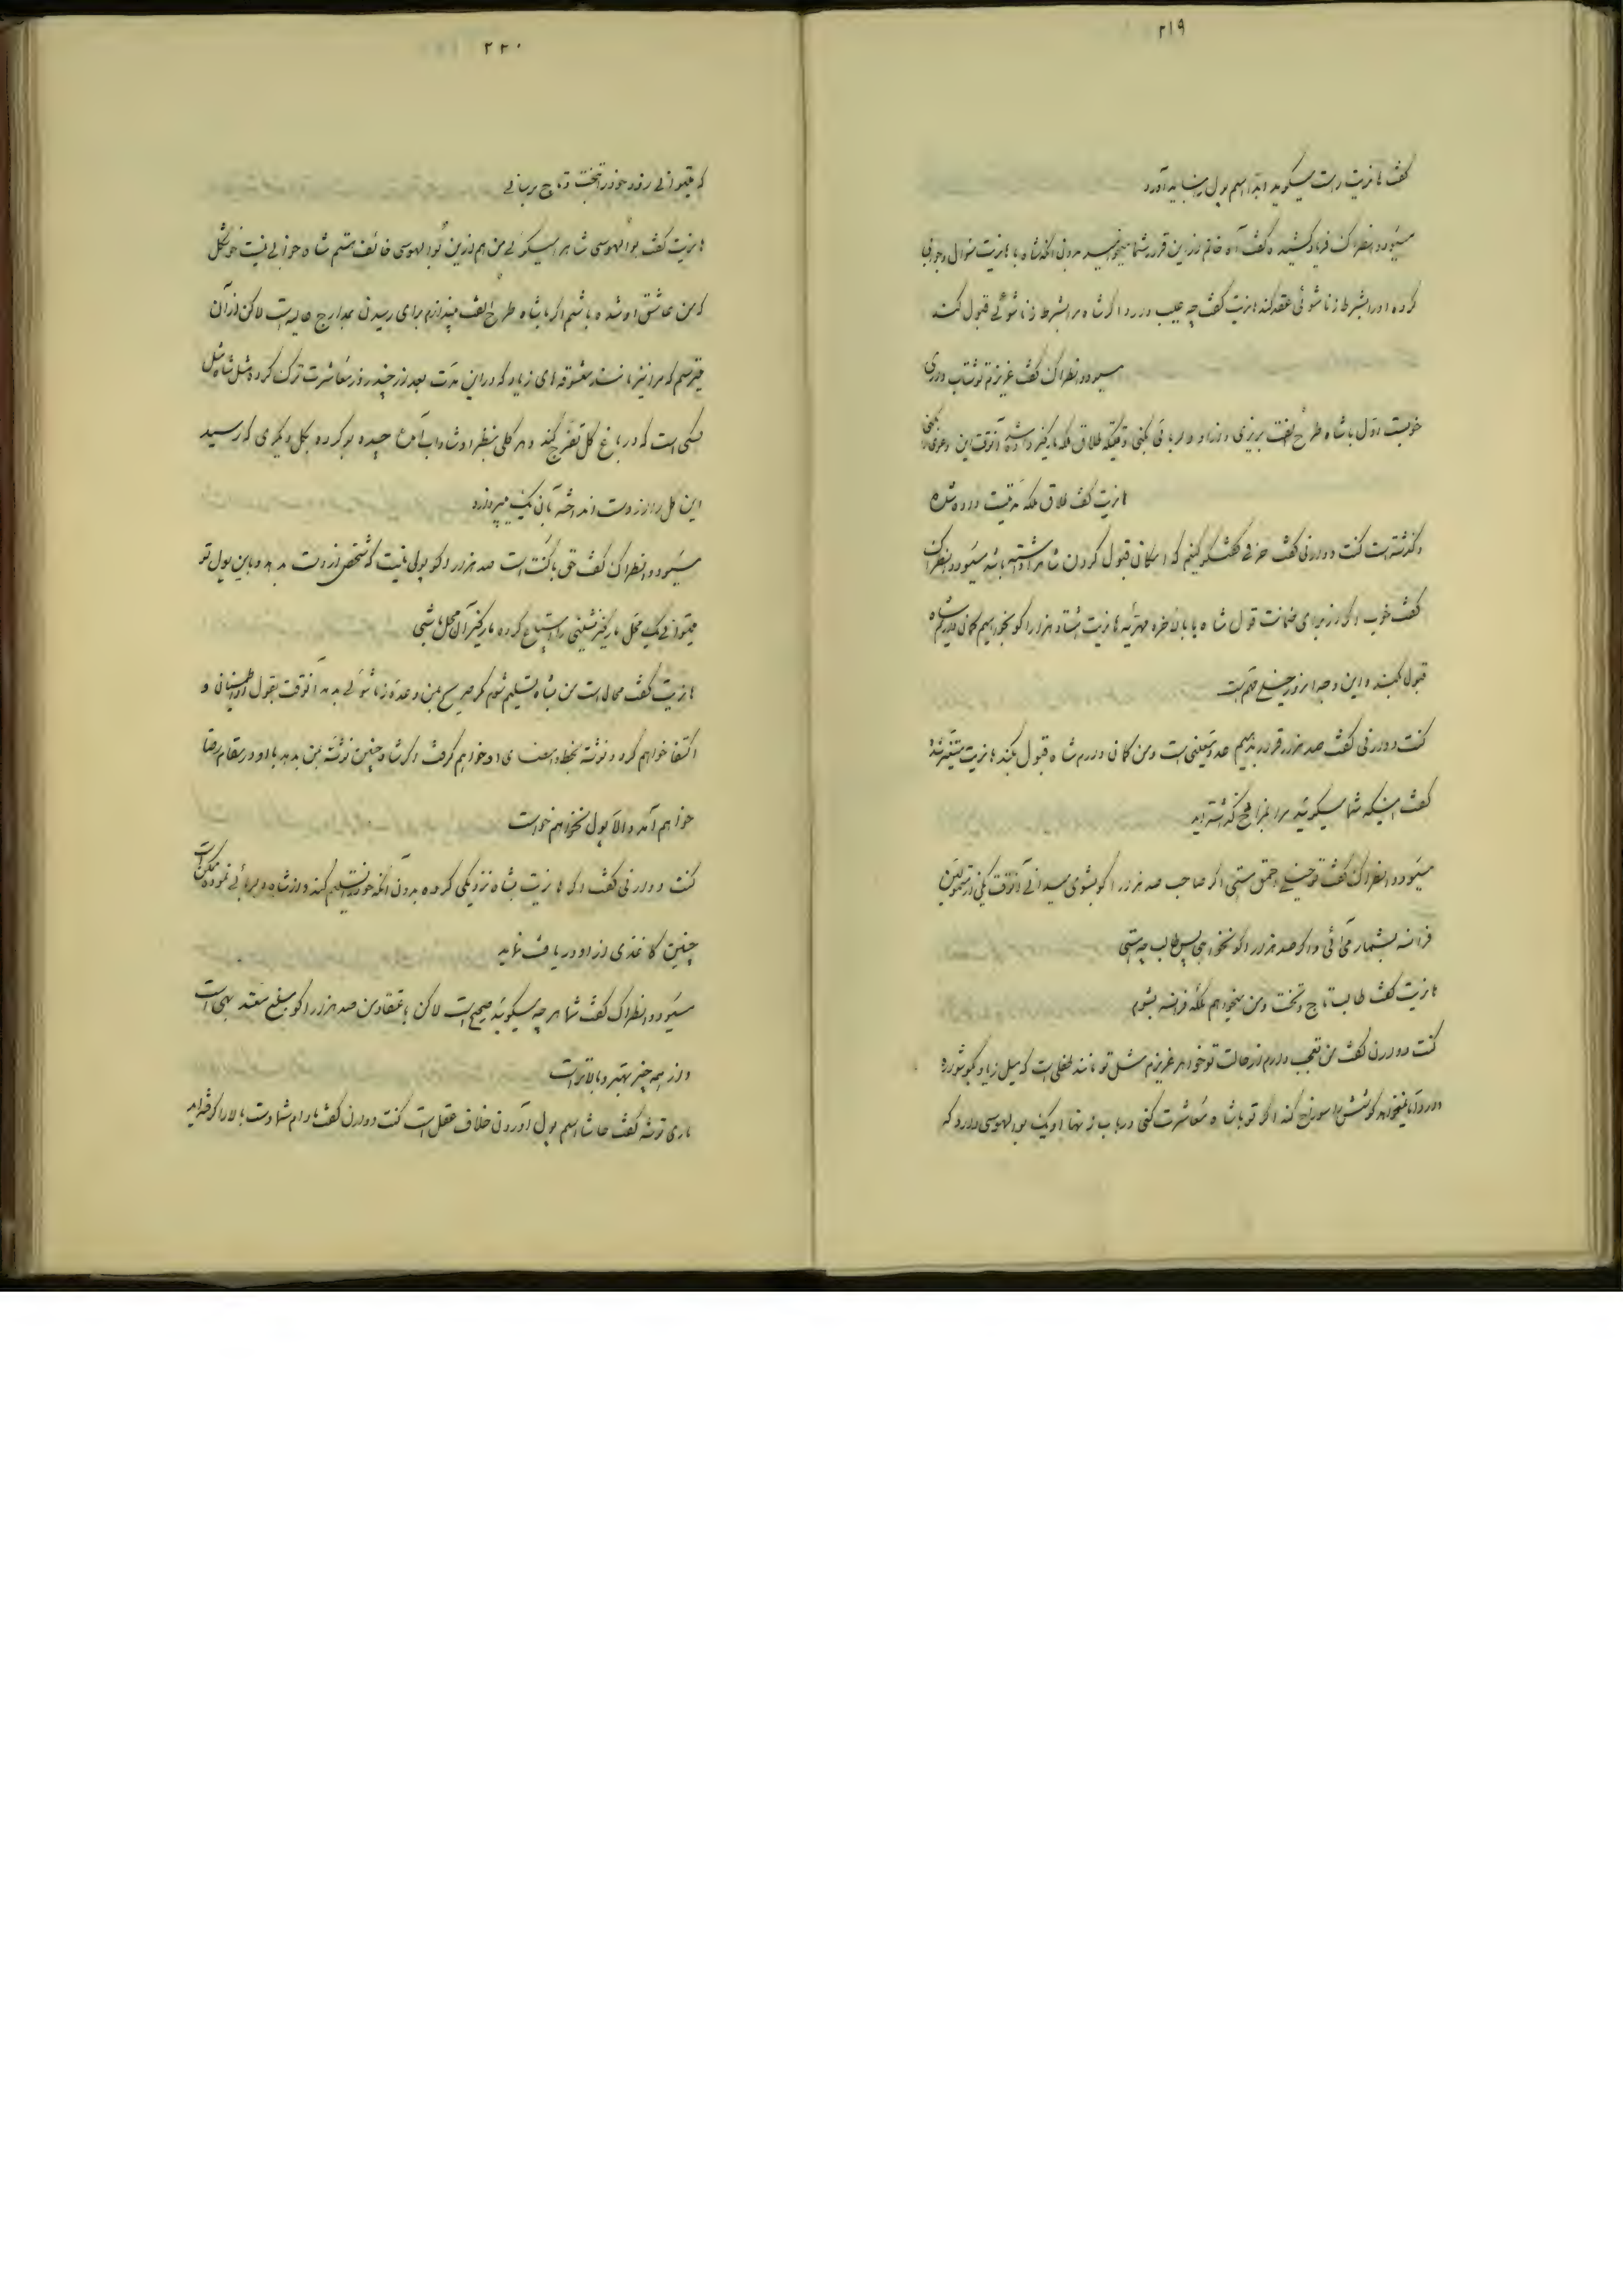 ۲۱۹
گفت هانریت راست میگوید ابدا اسم پول را نباید آورد
مسیو دانطراک فریاد کشیده گفت آه خانم از این قرار شما میخواهید بدون آنکه شاه با هانریت سوال و جوابی
کرده او را بشرط زناشوئی عقد کند هانریت گفت چه عیب دارد اگر شاه مرا بشرط زناشوئی قبول کند
مسیو دانطراک گفت عزیزم تو شتاب داری
خوبست اول با شاه طرح الفت بریزی و از او دلربائی کنی وقتیکه طلاق ملکه مارگریت داده شد آنوقت این دعوی را بکنی
هانریت گفت طلاق ملکه مدتیست داده شده
و گذشته است کنت دوورنی گفت حرفی گفتگو کنیم که امکان قبول کردن شاه را داشته باشد مسیو دانطراک
گفت خوب اگر از برای ضمانت قول شاه یا بالاخره مهریه هانریت هشتاد هزار اکو بخواهیم گمان دارم شاه
قبول کند و این وجه امروز خیلی مهم است
کنت دوورنی گفت صد هزار قرار بدهیم عدد معینی است و من گمان دارم شاه قبول بکند هانریت متغیر شد
گفت اینکه شما میگوئید مرا بمزایده گذاشته‌اید
مسیو دانطراک گفت تو خیلی احمق هستی اگر صاحب صد هزار اکو بشوی میدانی آنوقت یکی از متمولین
فرانسه بشمار می‌آئی و اگر صد هزار اکو نخواهی پس طالب چه هستی
هانریت گفت طالب تاج و تخت و من میخواهم ملکه فرانسه بشوم
کنت دوورن گفت من تعجب دارم از حالت تو خواهر عزیزم مثل تو مانند طفلی است که میل زیاد بگوشواره
دارد اما نمیخواهد گوشش را سوراخ کند اگر تو با شاه معاشرت کنی در باب زنها او یک بوالهوسی دارد که
۲۲۰
که میتوانی زود خود را بتخت و تاج برسانی
هانریت گفت بوالهوسی شاه را میگوئی من هم از این بوالهوسی خائف هستم شاه جوانی نیست خوشگل
که من عاشق او شده باشم اگر با شاه طرح الفت میندازم برای رسیدن بمدارج عالیه است لاکن از آن
میترسم که مرا نیز مانند معشوقه‌های زیاد که در این مدت بعد از چند روز معاشرت ترک کرده مثل شاه مثل
کسی است که در باغ گل تفرج کند و هر گلی بنظر او شاداب آمد چیده بو کرده بگل دیگری که رسید
این گل را از دست انداخته بآن یک میپردازد
مسیو دانطراک گفت حق با کنت است صد هزار اکو پولی نیست که شخص از دست بدهد و باین پول تو
میتوانی یک محل مارکیز نشینی را ابتیاع کرده مارکیز آن محل باشی
هانریت گفت محال است من بشاه تسلیم شوم مگر صریح بمن وعده زناشوئی بدهد آنوقت بقول او اطمینان و
اکتفا خواهم کرد و نوشته بخط و امضای او خواهم گرفت اگر شاه چنین نوشته بمن بدهد با او در مقام رضا
خواهم آمد والا پول نخواهم خواست
کنت دوورنی گفت اگر هانریت بشاه نزدیکی کرده بدون آنکه خود را تسلیم کند و از شاه دلربائی نموده ممکن است
چنین کاغذی از او دریافت نماید
مسیو دانطراک گفت شما هر چه میگوئید صحیح است لاکن باعتقاد من صد هزار اکو مبلغ معتد بهی است
و از همه چیز بهتر و بالاتر است
ماری توشه گفت حاشا اسم پول آوردن خلاف عقل است کنت دوورن گفت مادام شما دست بالا را گرفته‌اید